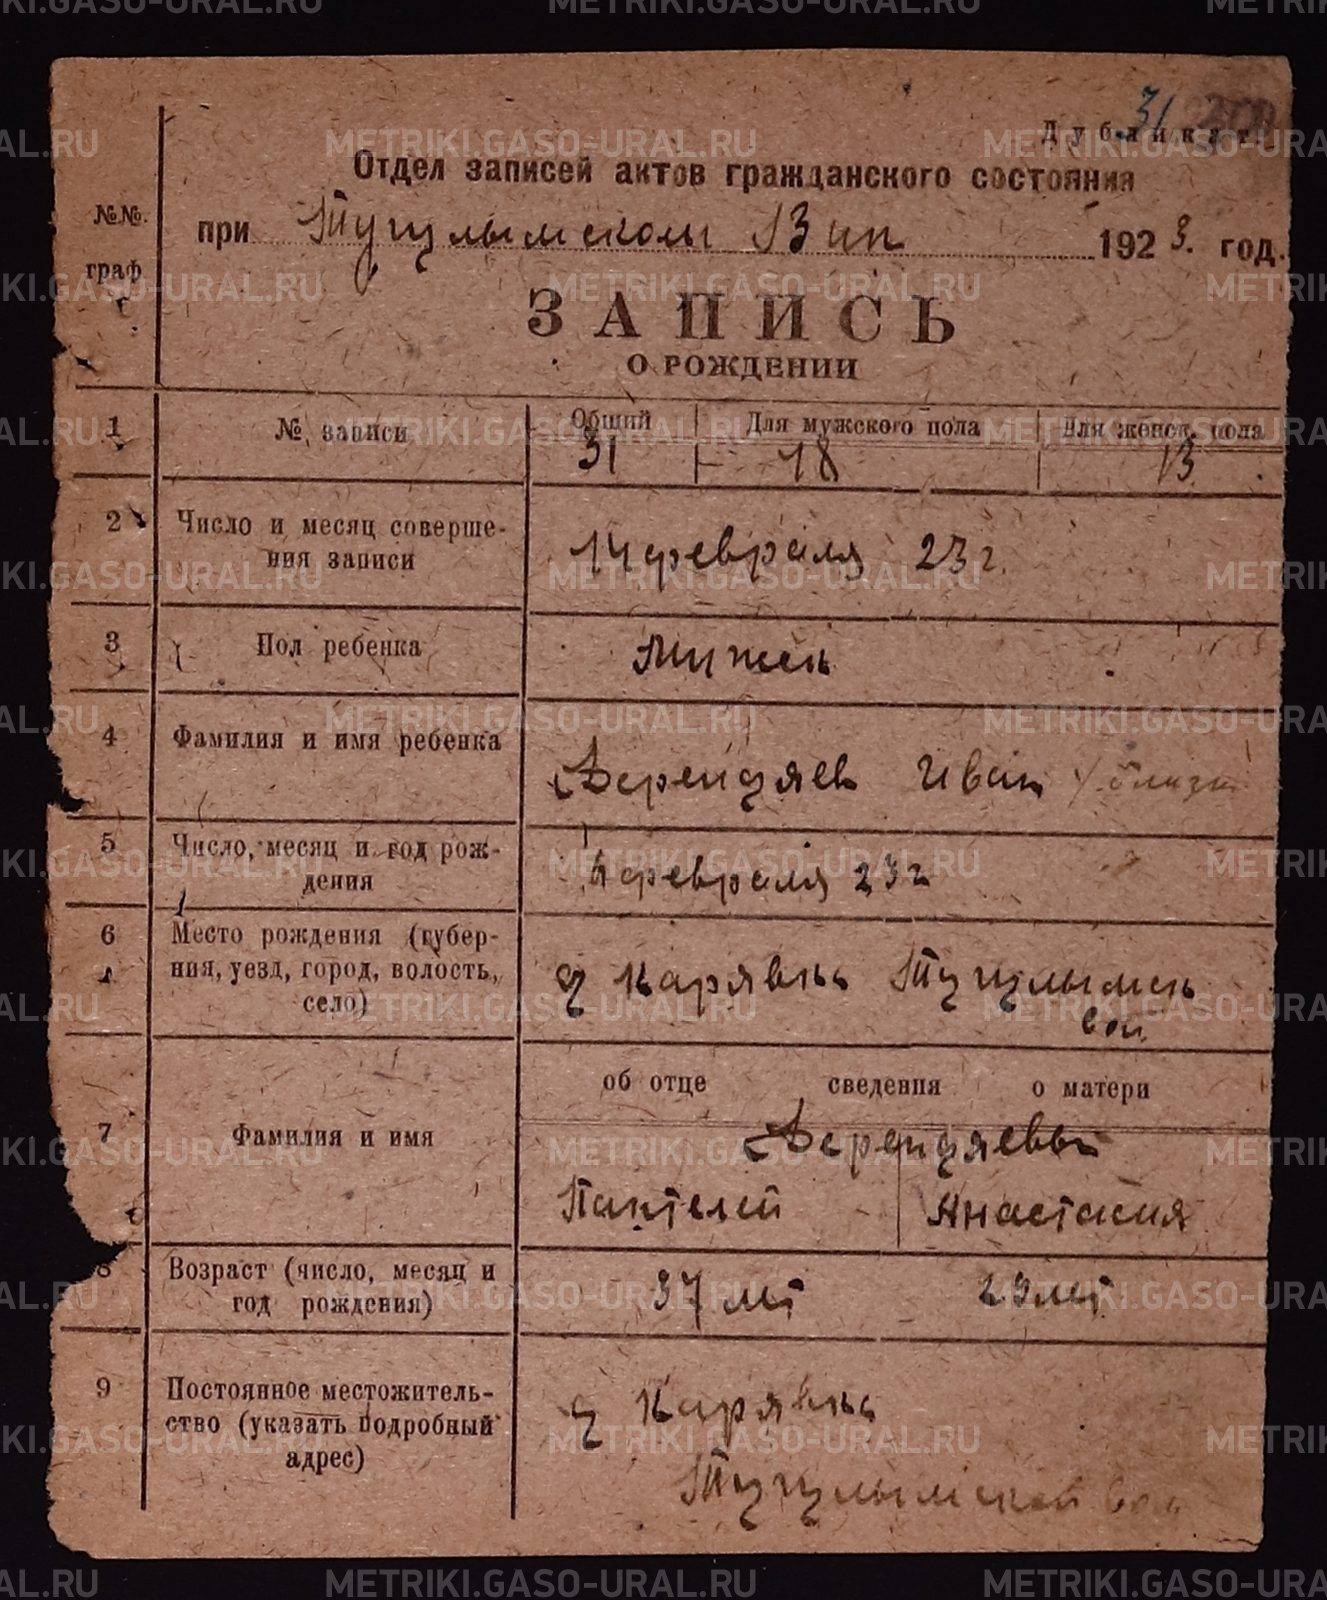 31
Дубликат.
Отдел записей актов гражданского состояния
№№
граф
при Тугулымском Вик 1923. год.
ЗАПИСЬ
О РОЖДЕНИИ
1 № записи Общий Для мужского пола Для женск. пола
31 18 13
2 Число и месяц соверше-
ния записи
14 февраля 23 г.
3 Пол ребенка
4 Фамилия и имя ребенка
Иван близн
5 Число, месяц и год рож-
дения
февраля 23 г
6 Место рождения (губер-
ния, уезд, город, волость,
село)
д Тугулымск
вол
об отце сведения о матери
7 Фамилия и имя
Пантелей Анастасия
8 Возраст (число, месяц и
год рождения)
37 лет 29 лет
9 Постоянное местожитель-
ство (указать подробный
адрес)
д
Тугулымской вол
METRIKI.GASO-URAL.RU